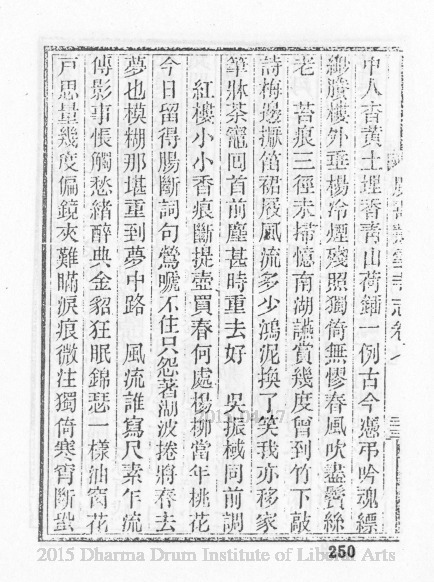 中人畜黄土埋香青山荷鍤一例古今慿弔吟魂縹
緲賸樓外垂楊冷煙殘照獨倚無憀春風吹盡鬢絲
老　苔痕三徑未掃憶南湖讌賞幾度曾到竹下敲
詩梅邊擫笛裙屐風流多少鴻泥換了笑我亦移家
筆牀茶竈囘首前塵甚時重去好　吳振棫同前調
紅樓小小香痕斷提壺買春何處楊柳當年桃花
今日留得腸斷詞句鶯嗁不住只怨著湖波捲將春去
夢也模糊那堪重到夢中路　風流誰寫尺素乍流
傳影事悵觸愁緒醉典金貂狂眠錦瑟一樣油窗花
戸思量幾度偏鏡夾難瞞淚痕微注獨倚寒宵斷蛩
寺志卷
250
2015 Dharma Drum Institute of Liberal Arts